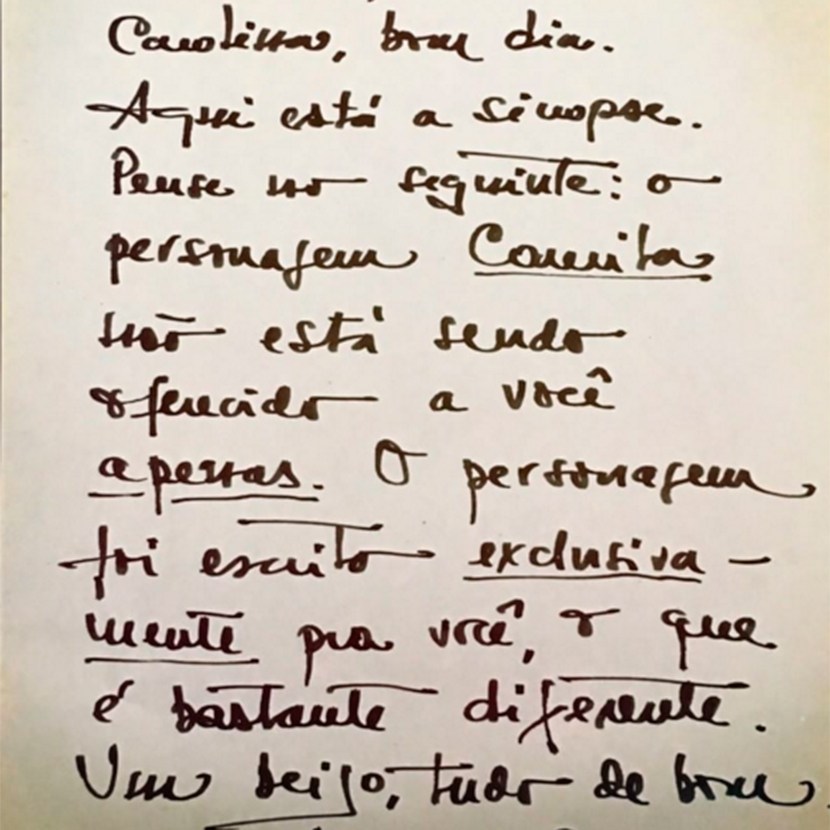 Carolina, bom dia.
Aqui está a sinopse.
Pense no seguinte: o
personagem Camila
não está sendo
oferecido a você
apenas. O personagem
foi escrito exclusiva-
mente pra você, o que
é bastante diferente.
Um beijo, tudo de bom